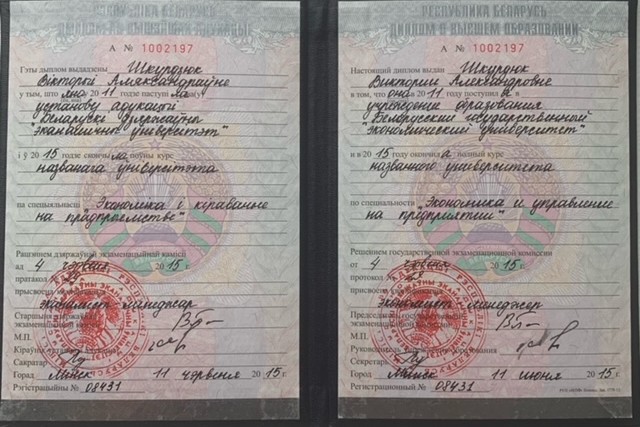 А № 1002197
Гэты дыплом выдадзены Шкурдзюк
Вікторыі Аляксандраўне
у тым, што яна 2011 годзе паступіла
установу адукацыі
"Беларускі дзяржаўны
эканамічны універсітэт"
і ў 2015 годзе скончыла поўны курс
названага універсітэта
па спецыяльнасці "Эканоміка і кіраванне
на прадпрыемстве"
Рашэннем дзяржаўнай экзаменацыйнай камісіі
ад 4 2015 г.
пратакол
прысвоена
эканаміст-менеджэр
Старшыня дзяржаўнай
экзаменацыйнай камісіі
М.П.
Кіраўнік
Сакратар
Горад Мінск 11 чэрвеня 2015 г.
Рэгістрацыйны № 08431
РЕСПУБЛИКА БЕЛАРУСЬ
ДИПЛОМ О ВЫСШЕМ ОБРАЗОВАНИИ
А № 1002197
Настоящий диплом выдан Шкурдюк
Виктории Александровне
в том, что она 2011 году поступила в
учреждение образования
"Белорусский государственный
экономический университет"
и в 2015 году окончила полный курс
названного университета
по специальности "Экономика и управление
на предприятии"
Решением государственной экзаменационной комиссии
от 4 2015 г.
протокол
присвоена
экономист-менеджер
Председатель государственной
экзаменационной комиссии
М.П.
Руководитель образования
Секретарь
Город Минск 11 июня 2015 г.
Регистрационный № 08431